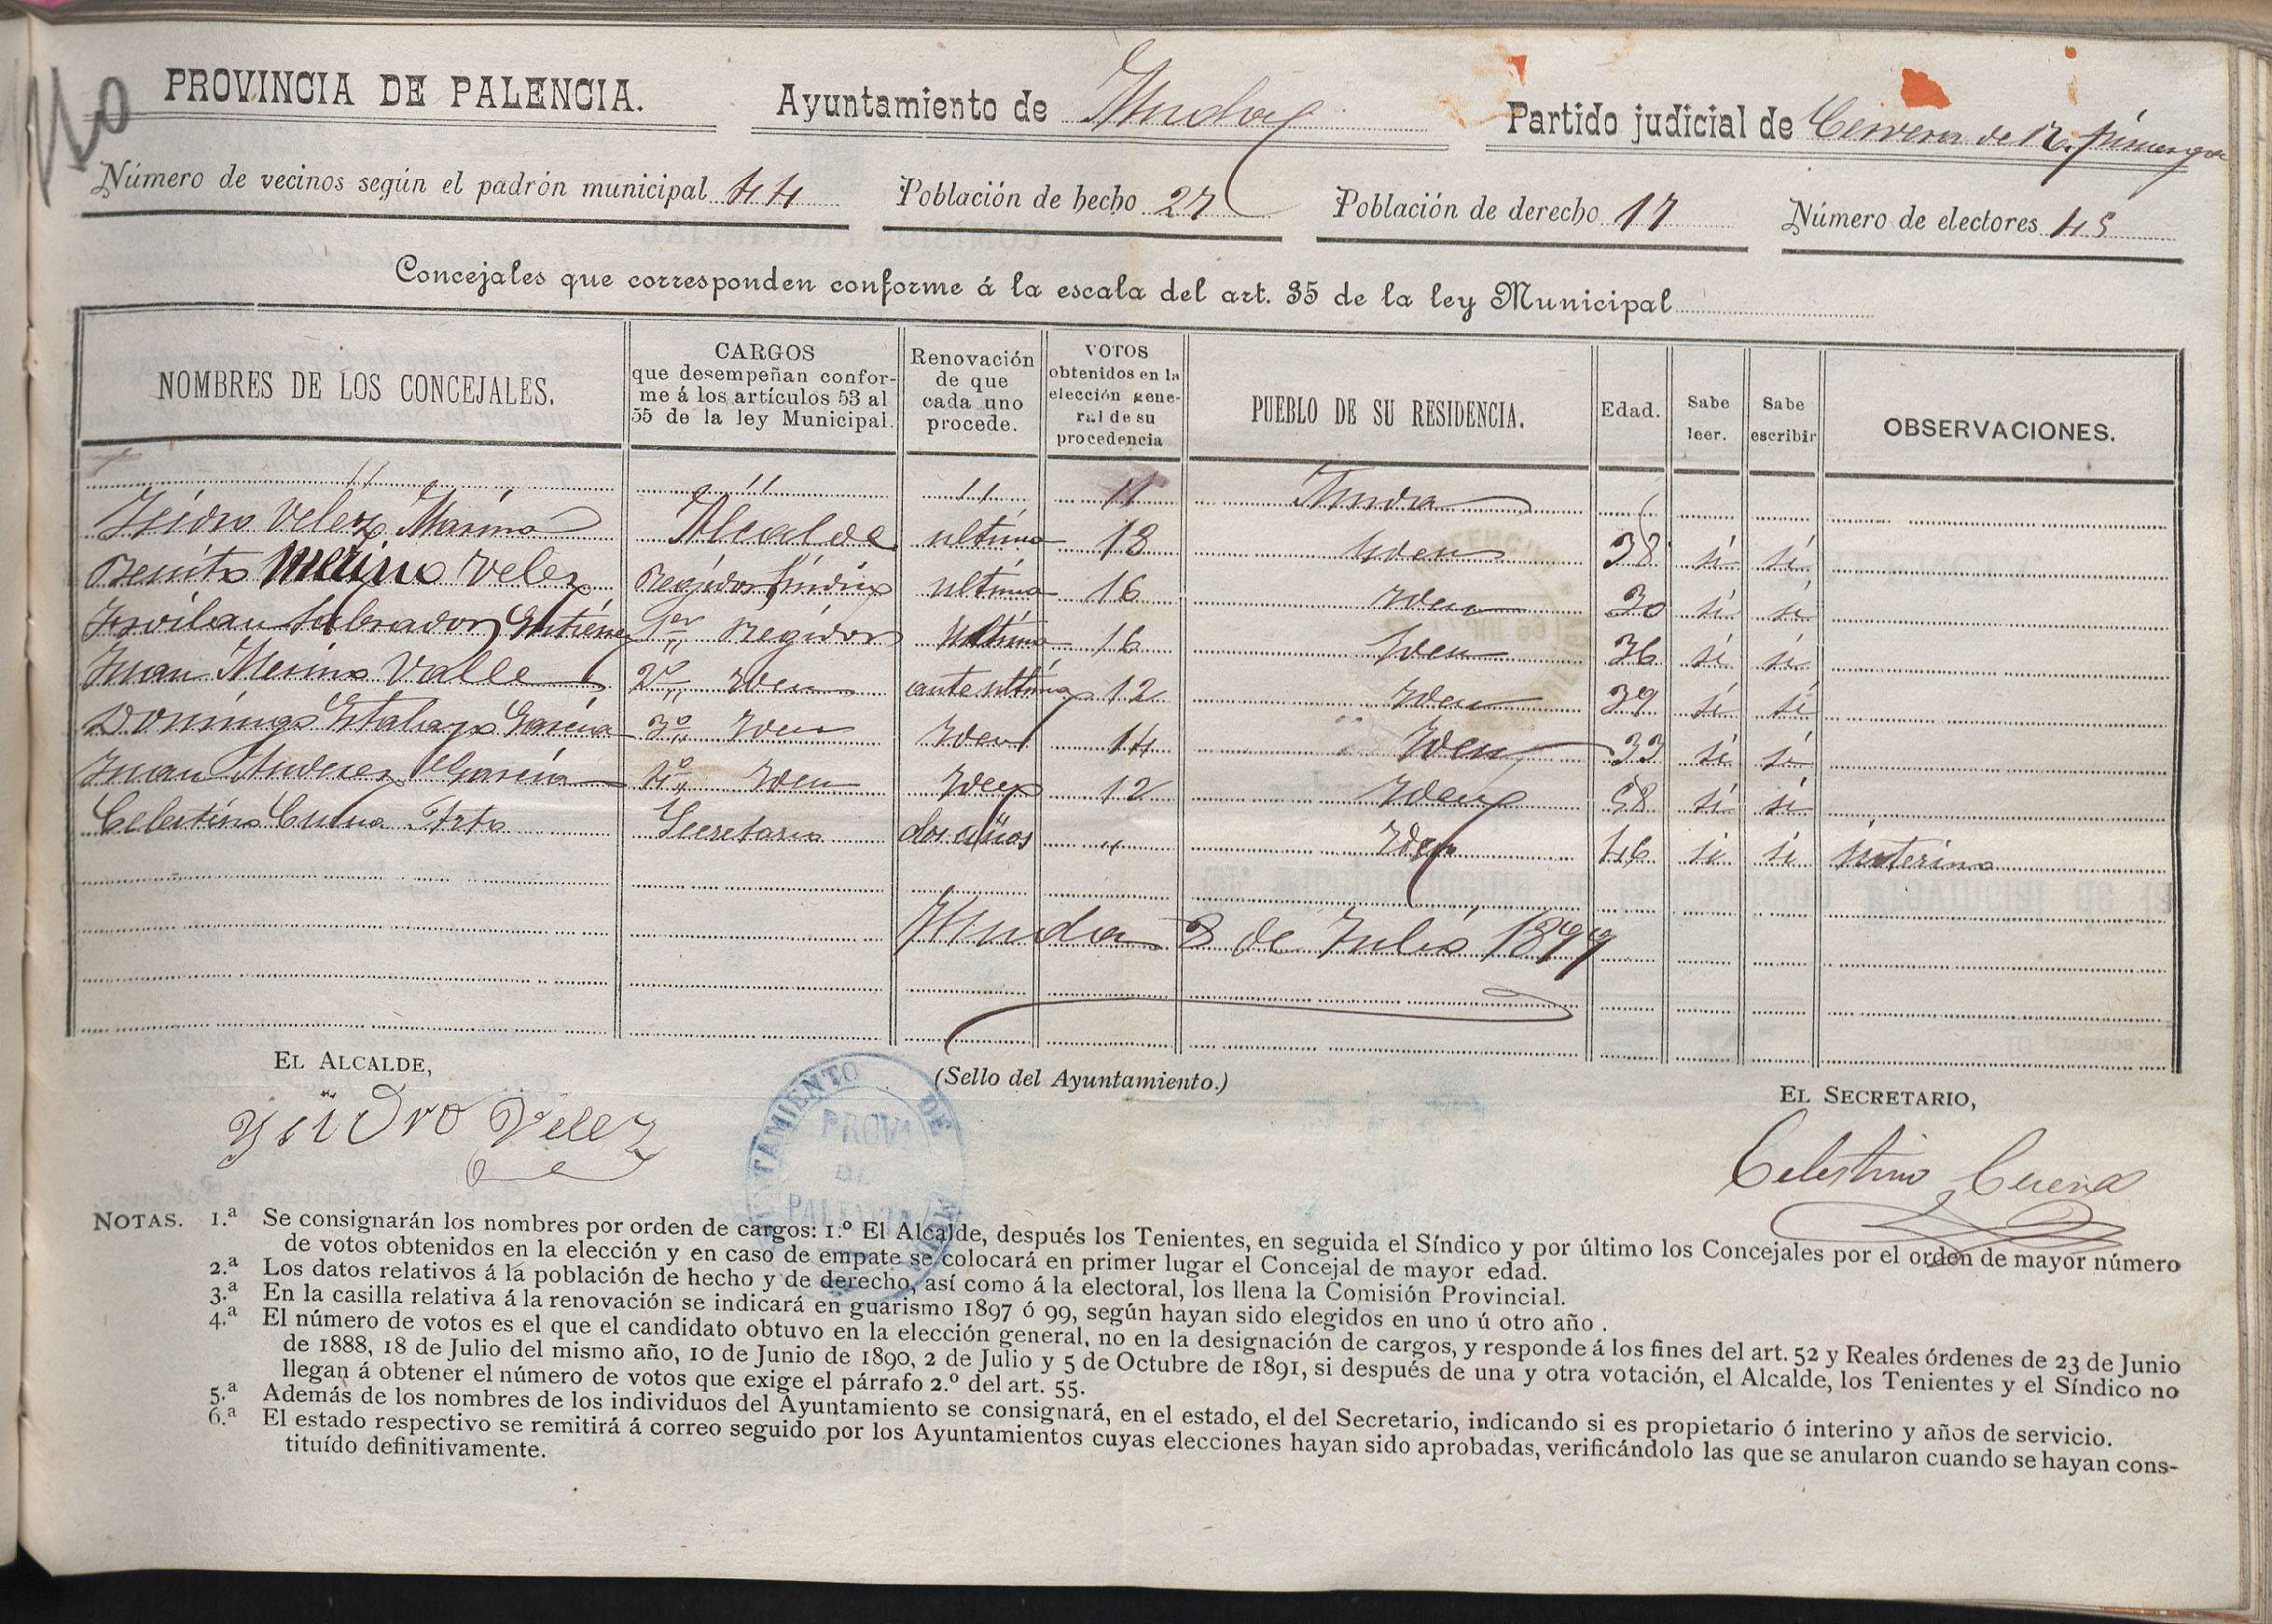 PROVINCIA DE PALENCIA. Ayuntamiento de Mudá Partido judicial de Cervera de R. Pisuerga
Número de vecinos según el padrón municipal 44 Población de hecho 27 Población de derecho 17 Número de electores 45
Concejales que corresponden conforme á la escala del art. 35 de la ley Municipal
NOMBRES DE LOS CONCEJALES. CARGOS que desempeñan conforme á los artículos 53 al 55 de la ley Municipal. Renovación de que cada uno procede. VOTOS obtenidos en la elección general de su procedencia PUEBLO DE SU RESIDENCIA. Edad. Sabe leer. Sabe escribir OBSERVACIONES.
" " " " Mudá
Isidro Velez Marina Alcalde ultima 18 Iden 38 si si
Benito Merino Velez Regidor Sindico ultima 16 Iden 30 si si
Froilan Labrador Gutiérrez 1er Regidor ultima 16 Iden 36 si si
Juan Merino Valle 2º Iden ante ultima 12 Iden 39 si si
Domingo Estalayo Garcia 3º Iden Iden 14 Iden 33 si si
Juan Garcia 4º Iden Iden 12 Iden 58 si si
Celestino Cuena Secretario dos años " Iden 46 si si interino
Muda 8 de Julio 1899
EL ALCALDE, (Sello del Ayuntamiento.) EL SECRETARIO,
Ysidro Velez Celestino Cuena
AYUNTAMIENTO DE
PROVA
DE
PALENCIA
NOTAS. 1.ª Se consignarán los nombres por orden de cargos: 1.º El Alcalde, después los Tenientes, en seguida el Síndico y por último los Concejales por el orden de mayor número
de votos obtenidos en la elección y en caso de empate se colocará en primer lugar el Concejal de mayor edad.
2.ª Los datos relativos á la población de hecho y de derecho, así como á la electoral, los llena la Comisión Provincial.
3.ª En la casilla relativa á la renovación se indicará en guarismo 1897 ó 99, según hayan sido elegidos en uno ú otro año .
4.ª El número de votos es el que el candidato obtuvo en la elección general, no en la designación de cargos, y responde á los fines del art. 52 y Reales órdenes de 23 de Junio
de 1888, 18 de Julio del mismo año, 10 de Junio de 1890, 2 de Julio y 5 de Octubre de 1891, si después de una y otra votación, el Alcalde, los Tenientes y el Síndico no
llegan á obtener el número de votos que exige el párrafo 2.º del art. 55.
5.ª Además de los nombres de los individuos del Ayuntamiento se consignará, en el estado, el del Secretario, indicando si es propietario ó interino y años de servicio.
6.ª El estado respectivo se remitirá á correo seguido por los Ayuntamientos cuyas elecciones hayan sido aprobadas, verificándolo las que se anularon cuando se hayan cons-
tituído definitivamente.